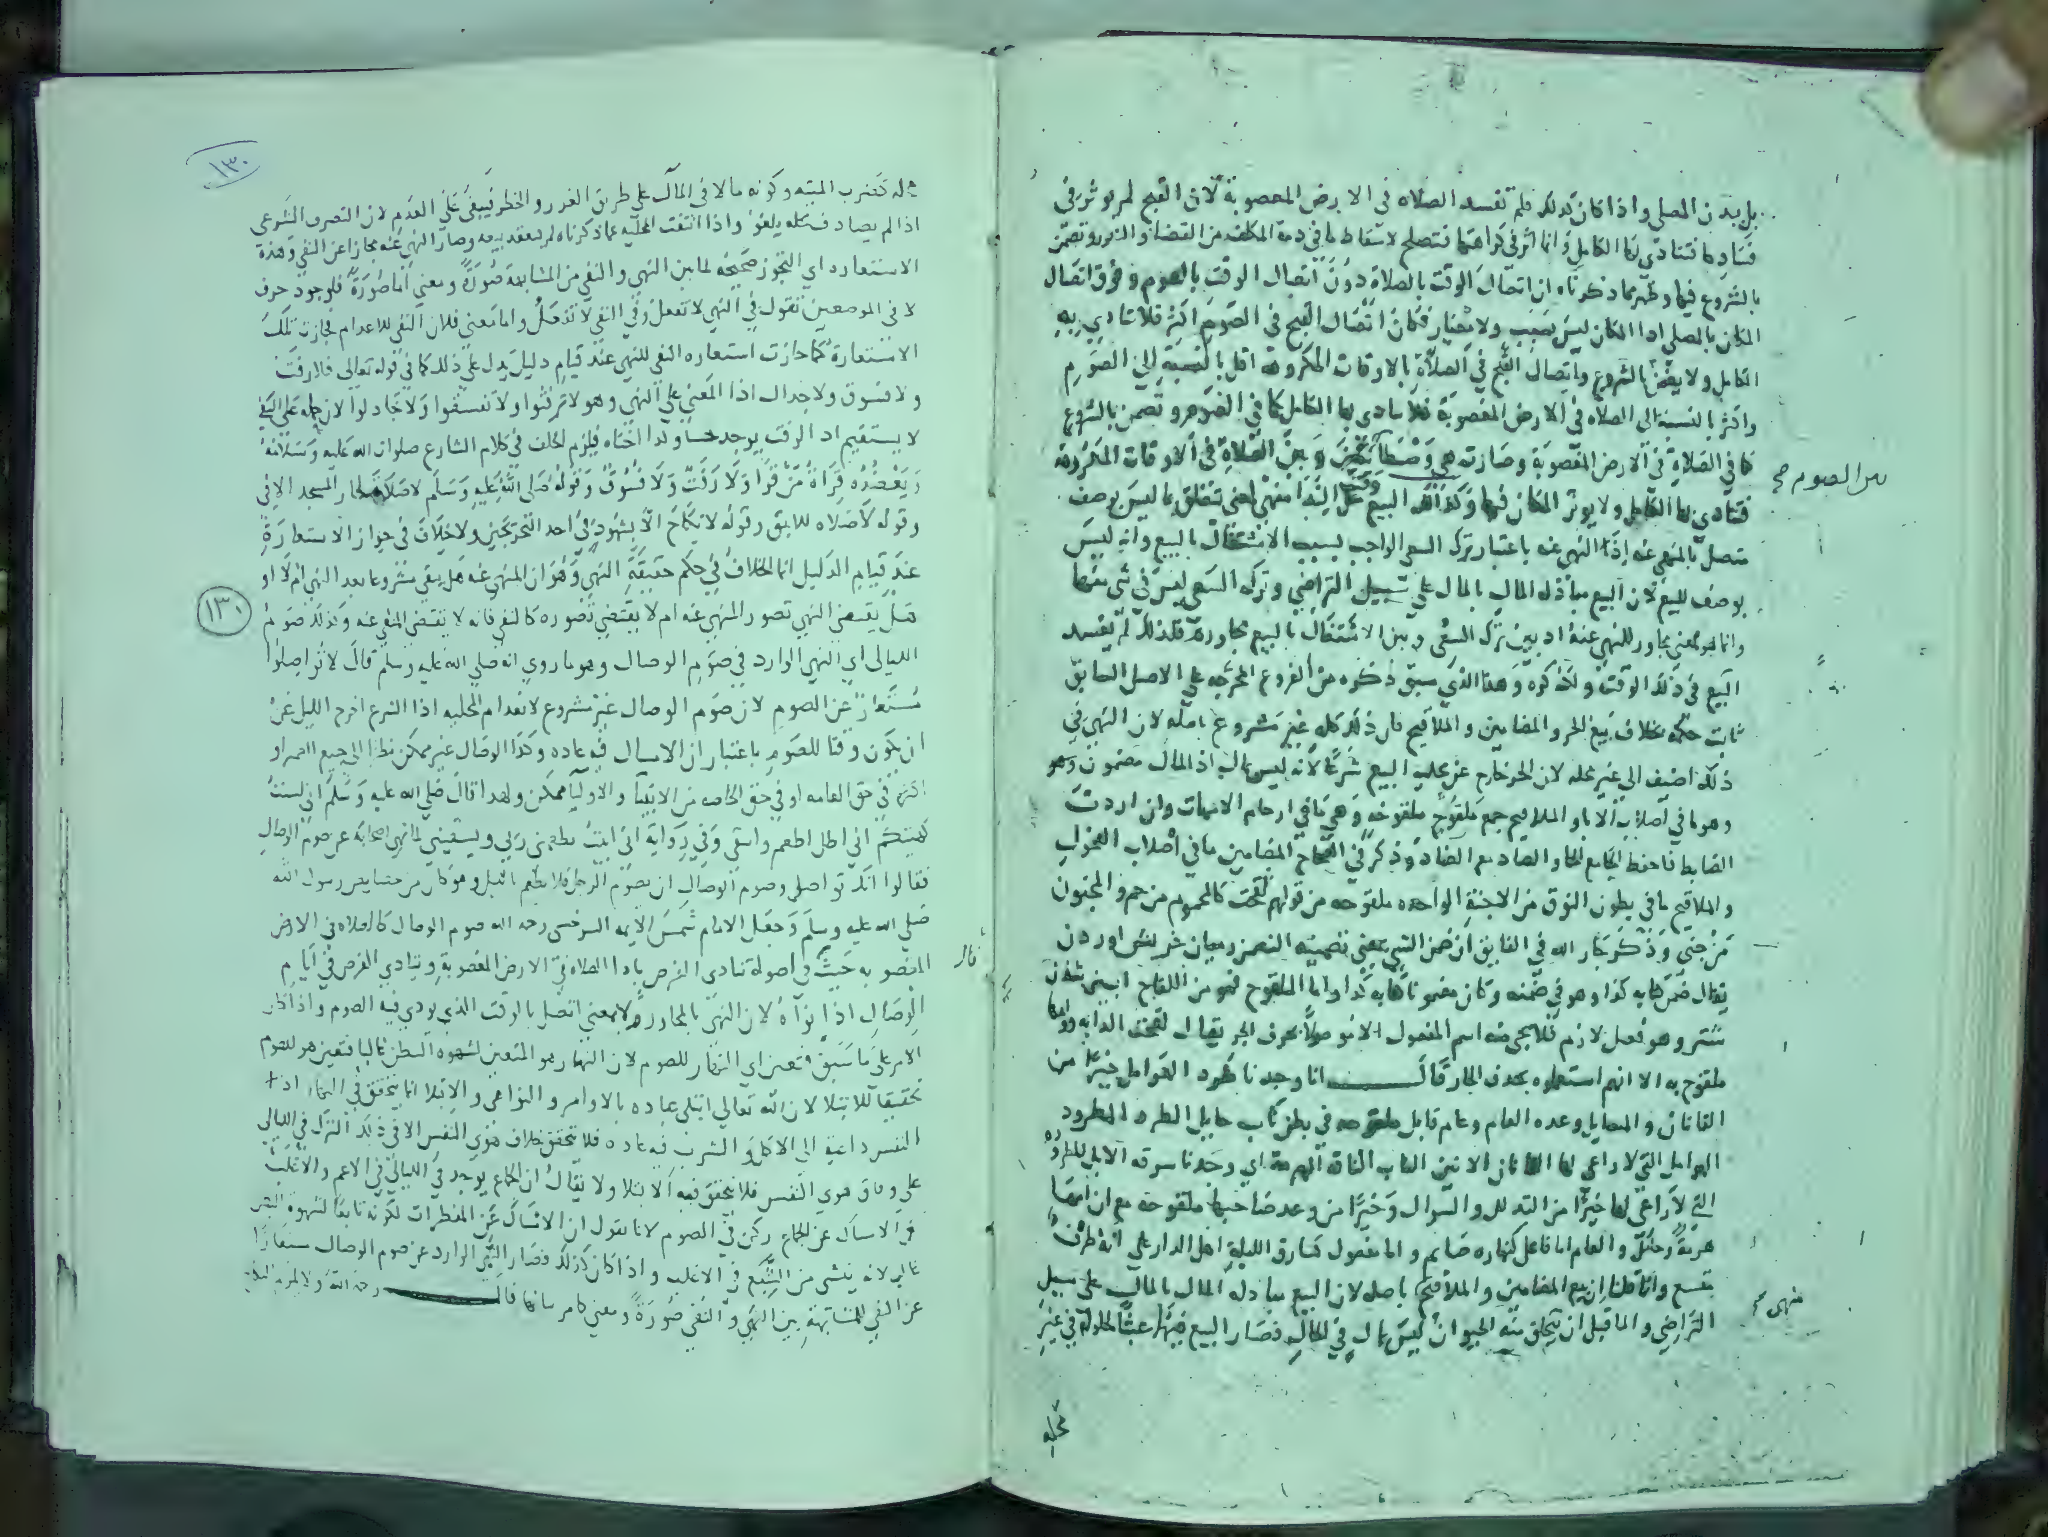 بل ببدن المصلي واذا كان كذلك فلم تفسد الصلاة في الارض المغصوبة لان القبح لم يوثر في
فسادها فتنادي بها الكامل وانما اثر في كراهتها فتصلح لاسقاط ما في ذمة المكلف من القضاء والنذور وتضمن
بالشروع فيها وظهر مما ذكرناه ان اتصال الوقت بالصلاة دون اتصال الوقت بالصوم وفوق اتصال
المكان بالمصلي اذا المكان ليس بسبب ولا معيار فكان اتصال القبح في الصوم اكثر فلا تنادي به
الكامل ولا يضمن بالشروع واتصال القبح في الصلاة بالاوقات المكروهة اقل بالنسبة الى الصوم
واكثر بالنسبة الى الصلاة في الارض المغصوبة فلا تنادي بها الكامل كما في الصوم وتضمن بالشروع
كما في الصلاة في الارض المغصوبة وصارت هي وسطا بين وبين الصلاة في الاوقات المكروهة
بين الصوم صح
فتنادي بها الكامل ولا يوثر المكان فيها وكذلك البيع وقت النداء منهي لمعنى متعلق بما ليس بوصف
متصل بالمنهي عنه اذ النهي عنه باعتبار ترك السعي الواجب بسبب الاشتغال بالبيع وانه ليس
بوصف للبيع لان البيع مبادلة المال بالمال على سبيل التراضي وترك السعي ليس في شي منهما
وانما هو معنى مجاور للمنهي عنه اذ بين ترك السعي وبين الاشتغال بالبيع مجاورة فلذلك لم يفسد
البيع في ذلك الوقت ولكن كره وهذا الذي سبق ذكره من الفروع المخرجة على الاصل السابق
ثابت حكمه بخلاف بيع الحر والمضامين والملاقيح فان ذلك كله غير مشروع باصله لان النهي في
ذلك اضيف الى غير محله لان الحر خارج عن محلية البيع شرعا لانه ليس بمال اذ المال مضمون وهو
وهو ما في اصلاب الاباء والملاقيح جمع ملقوح ملقوحه وهي ما في ارحام الامهات وان اردت
الضابط فاحفظ الجامع الحاء والصاد مع الضاد وذكر في الصحاح المضامين ما في اصلاب الفحول
والملاقيح ما في بطون النوق من الاجنة الواحده ملقوحه من قولهم لقحت كالمحموم من حم والمجنون
من جن وذكر جار الله في الفايق
يقال ضمن كتابه كذا وهو في ضمنه وكان مضمون كتابه كذا واما الملقوح فهو من اللقاح
وهو فعل لازم فلا يجي منه اسم المفعول الا موصولا بحرف الجر يقال لقحت الدابه وولدها
ملقوح به الا انهم استعملوه بحذف الجار قال انا وجدنا طرد الهوامل خيرا من
التانان والمسايل وعده العام وعام قابل ملقوحه في بطن ناب حايل الطرد المطرود
الهوامل التي لا راعي لها التانان الانين الناب الناقة الهرمة اي وجدنا سرقة الابل المطروده
التي لا راعي لها خيرا من التذلل والسوال وخيرا من وعد صاحبها ملقوحه مع ان امها
هرمة وحايل والعام اما فاعل كنهاره صايم والمفعول كسارق الليلة اهل الدار على انه ظرف
متسع وانما قلنا ان بيع المضامين والملاقيح باصله لان البيع مبادلة المال بالمال على سبيل
منهي صح
التراضي والماء قبل ان يخلق منه الحيوان ليس بمال في الحال فصار البيع فيهما عبثا لحلوله في غير
محله
محله كضرب الميته وكونه مالا في المال على طريق الغرر والخطر فيبقى على العدم لان التصرف الشرعي
١٣٠
اذا لم يصادف محله يلغو واذا انتفت المحلية مما ذكرناه لم ينعقد بيعه وصار النهي عنه مجازا عن النفي وهذه
الاستعاره اي التجوز صحيحه لما بين النهي والنفي من المشابهة صورة ومعنى اما صورة فلوجود حرف
لا في الموضعين تقول في النهي لا تفعل وفي النفي لا تفعل واما معنى فلان النفي للاعدام فجازت تلك
الاستعارة كما جازت استعاره النفي للنهي عند قيام دليل يدل على ذلك كما في قوله تعالى فلا رفث
ولا فسوق ولا جدال اذا المعنى على النهي وهو لا ترفثوا ولا تفسقوا ولا تجادلوا لان حمله على النفي
لا يستقيم اذ الرفث يوجد حسا وكذا اختاه فيلزم الخلف في كلام الشارع صلوات الله عليه وسلامه
ويعضده قراة من قرا ولا رفث ولا فسوق وقوله صلى الله عليه وسلم لا صلاة لجار المسجد الا في
وقوله لا صلاه للابق وقوله لا نكاح الا بشهود في احد التخريجين ولا خلاف في جواز الاستعارة
عند قيام الدليل انما الخلاف في حكم حقيقة النهي وهو ان المنهي عنه هل يبقى مشروعا بعد النهي ام لا او
١٣٠
هل يقتضي النهي تصور المنهي عنه ام لا يقتضي تصوره كالنفي فانه لا يقتضي المنفي عنه وكذلك صوم
الليالي اي النهي الوارد في صوم الوصال وهو ما روي انه صلى الله عليه وسلم قال لا تواصلوا
مستعار عن الصوم لان صوم الوصال غير مشروع لانعدام المحليه اذا الشرع اخرج الليل عن
ان يكون وقتا للصوم باعتبار ان الامساك فيه عاده وكذا الوصال غير ممكن نظرا الى جميع العمر او
اكثره في حق العامه او في حق الخاصه من الانبياء والاولياء ممكن ولهذا قال صلى الله عليه وسلم اني لست
كهيئتكم اني اظل اطعم واسقى وفي رواية اني ابيت يطعمني ربي ويسقيني لما نهى اصحابه عن صوم الوصال
فقالوا انك تواصل وصوم الوصال ان يصوم الرجل فلا يطعم بالليل وهو كان من خصايص رسول الله
صلى الله عليه وسلم وجعل الامام شمس الايمه السرخسي رحمه الله صوم الوصال كالصلاه في الارض
قال
المغصوبه حيث في اصوله تنادي الفرض باداء الصلاة في الارض المغصوبة وينادي الفرض في ايام
الوصال اذا نواه لان النهي بالمجاوره لا بمعنى اتصل بالوقت الذي يودي فيه الصوم واذا كان
الامر على ما سبق فتعين اي النهار للصوم لان النهار هو المتعين لشهوة البطن غالبا فتعين هو للصوم
تحقيقا للابتلاء لان الله تعالى ابتلى عباده بالاوامر والنواهي والابتلا انما يتحقق في النهار اذ
النفس داعية الى الاكل والشرب فيه عاده فلا تتحقق خلاف هوى النفس الا في ذلك الترك في الليالي
على وفاق هوى النفس فلا يتحقق فيه الابتلا ولا يقال ان الجماع يوجد في الليالي في الاعم والاغلب
مع ان الامساك عن الجماع ركن في الصوم لانا نقول ان الامساك عن المفطرات لكونه تابعا لشهوة البطن
غالبا لانه ينشي من الشبع في الاغلب واذا كان كذلك فصار النهي الوارد عن صوم الوصال مستعارا
عن النفي للمشابهة بين النهي والنفي صورة ومعنى كما مر بيانها قال رحمه الله